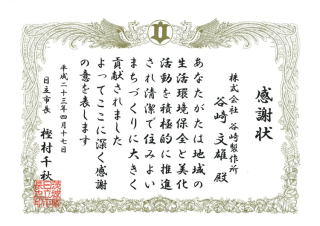 感謝状
株式会社 谷崎製作所
谷崎文雄 殿
あなたがたは地域の
生活環境保全と美化
活動を積極的に推進
され清潔で住みよい
まちづくりに大きく
貢献されました
よってここに深く感謝
の意を表します
平成二十三年四月十七日
日立市長 樫村千秋